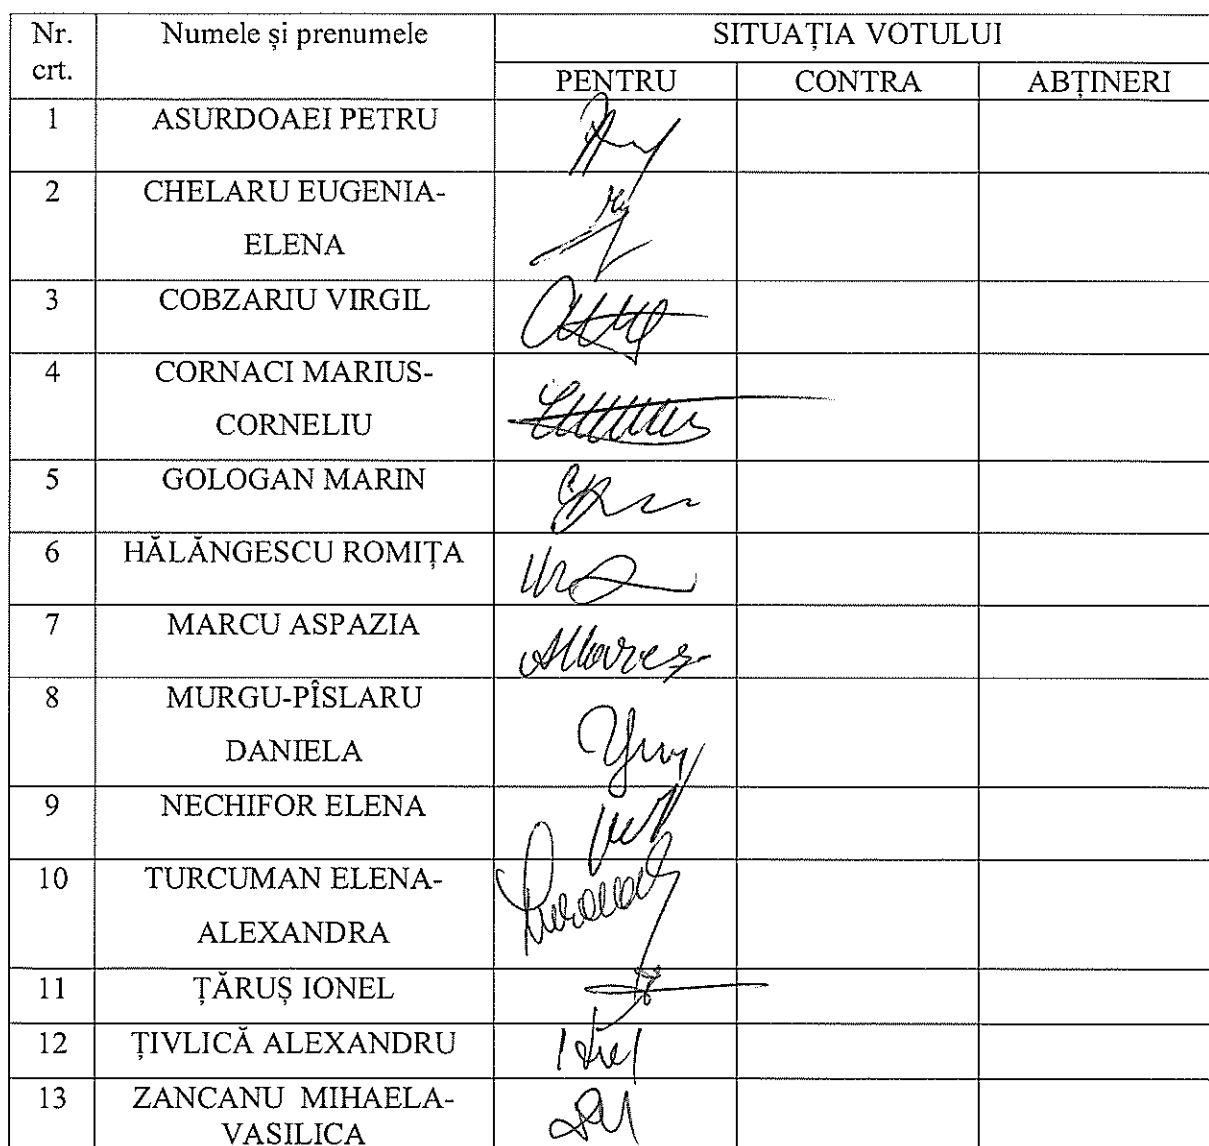 Nr. crt.
Numele și prenumele
SITUAȚIA VOTULUI
PENTRU CONTRA ABȚINERI
1 ASURDOAEI PETRU
2 CHELARU EUGENIA-
ELENA
3 COBZARIU VIRGIL
4 CORNACI MARIUS-
CORNELIU
5 GOLOGAN MARIN
6 HĂLĂNGESCU ROMIȚA
7 MARCU ASPAZIA
8 MURGU-PÎSLARU
DANIELA
9 NECHIFOR ELENA
10 TURCUMAN ELENA-
ALEXANDRA
11 ȚĂRUȘ IONEL
12 ȚIVLICĂ ALEXANDRU
13 ZANCANU MIHAELA-
VASILICA